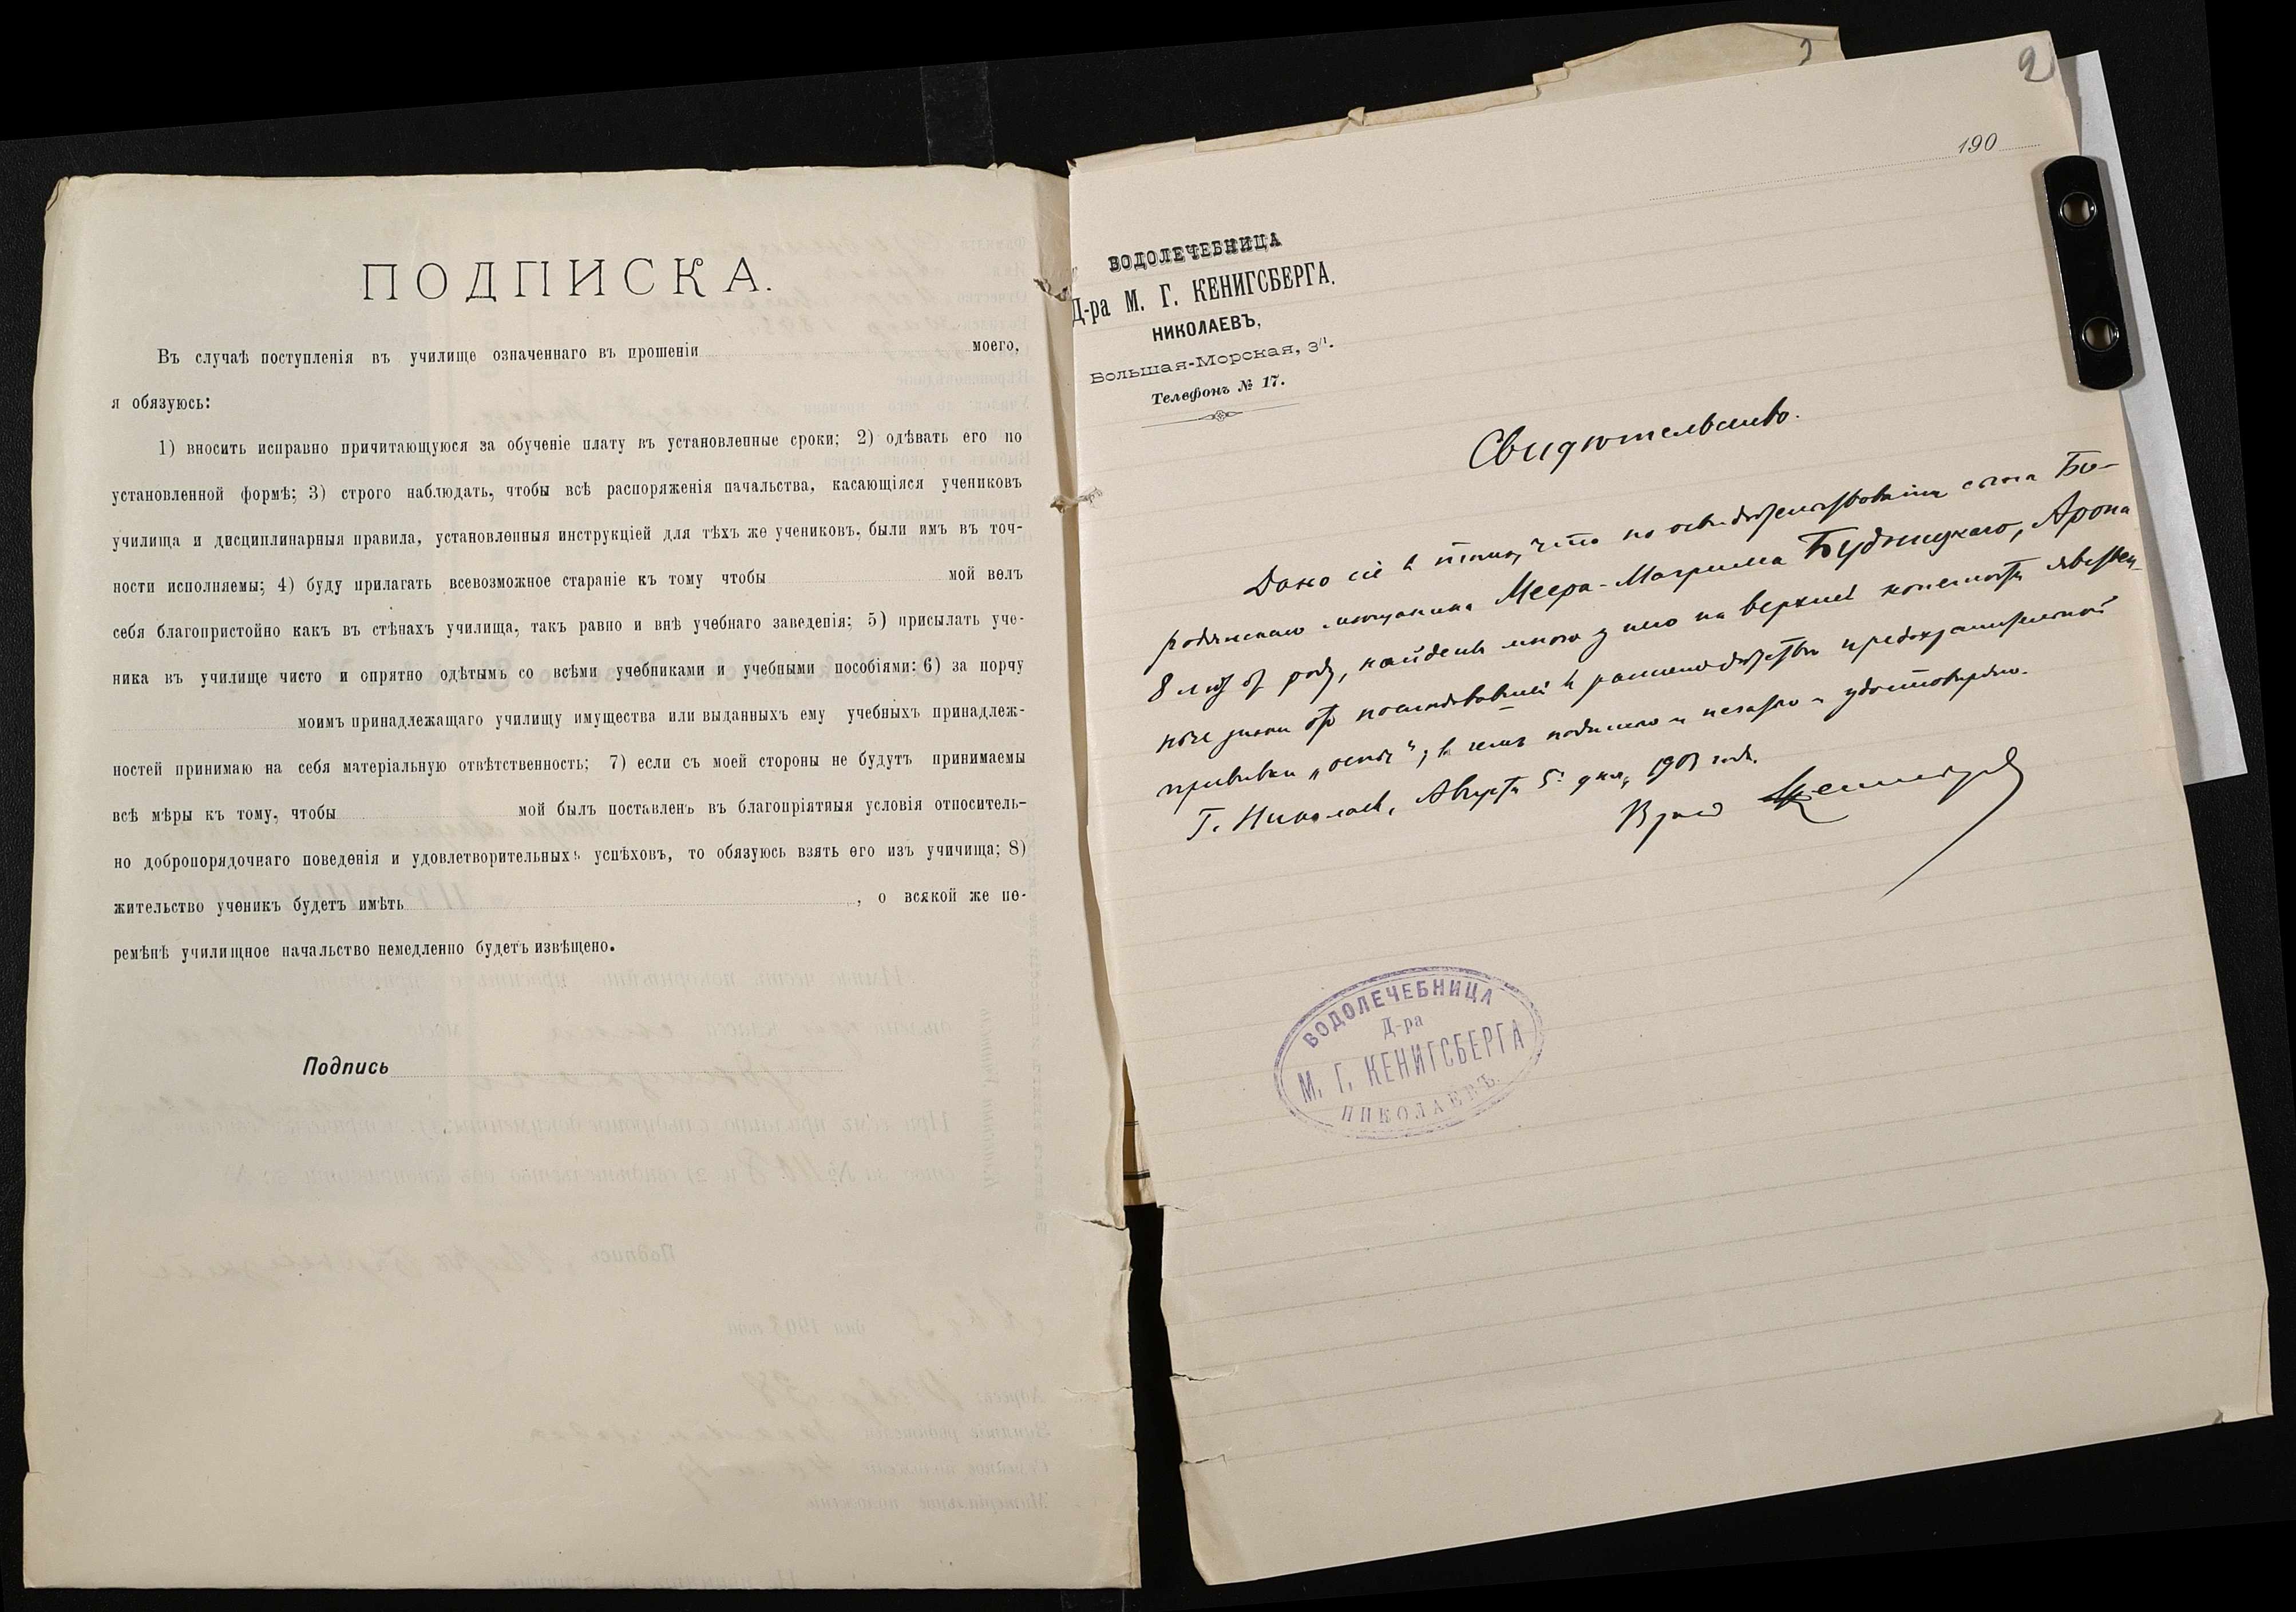 ПОДПИСКА.
Въ случаѣ поступленія въ училище означеннаго въ прошеніи моего,
я обязуюсь:
1) вносить исправно причитающуюся за обученіе плату въ установленные сроки; 2) одѣвать его по
установленной формѣ; 3) строго наблюдать, чтобы всѣ распоряженія начальства, касающіяся учениковъ
училища и дисциплинарныя правила, установленныя инструкціей для тѣхъ же учениковъ, были имъ въ точ-
ности исполняемы; 4) буду прилагать всевозможное стараніе къ тому чтобы мой велъ
себя благопристойно какъ въ стѣнахъ училища, такъ равно и внѣ учебнаго заведенія; 5) присылать уче-
ника въ училище чисто и опрятно одѣтымъ со всѣми учебниками и учебными пособіями: 6) за порчу
моимъ принадлежащаго училищу имущества или выданныхъ ему учебныхъ принадлеж-
ностей принимаю на себя матеріальную отвѣтственность; 7) если съ моей стороны не будутъ принимаемы
всѣ мѣры къ тому, чтобы мой былъ поставленъ въ благопріятныя условія относитель-
но добропорядочнаго поведенія и удовлетворительныхъ успѣховъ, то обязуюсь взять его изъ учичища; 8)
жительство ученикъ будетъ имѣть , о всякой же пе-
ремѣнѣ училищное начальство немедленно будетъ извѣщено.
Подпись
2
190
ВОДОЛЕЧЕБНИЦА
Д-ра М. Г. КЕНИГСБЕРГА.
НИКОЛАЕВЪ,
Большая-Морская, з/1.
Телефонъ № 17.
Свидѣтельство.
Дано сіе въ томъ, что по освидѣтельствованіи сына Бо-
Меера-Маргулиса Будницкаго, Арона
8 лѣтъ отъ роду, найдены мною у него на верхней конечности явствен-
ные знаки отъ послѣдовавшей предохранительной
прививки „оспы“; въ чемъ подписью и печатью и удостовѣряю.
Г. Николаевъ, Августа 5 дня, 1903 года.
Врачъ Кенигсбергъ
ВОДОЛЕЧЕБНИЦА
Д-ра
М. Г. КЕНИГСБЕРГА
НИКОЛАЕВЪ.